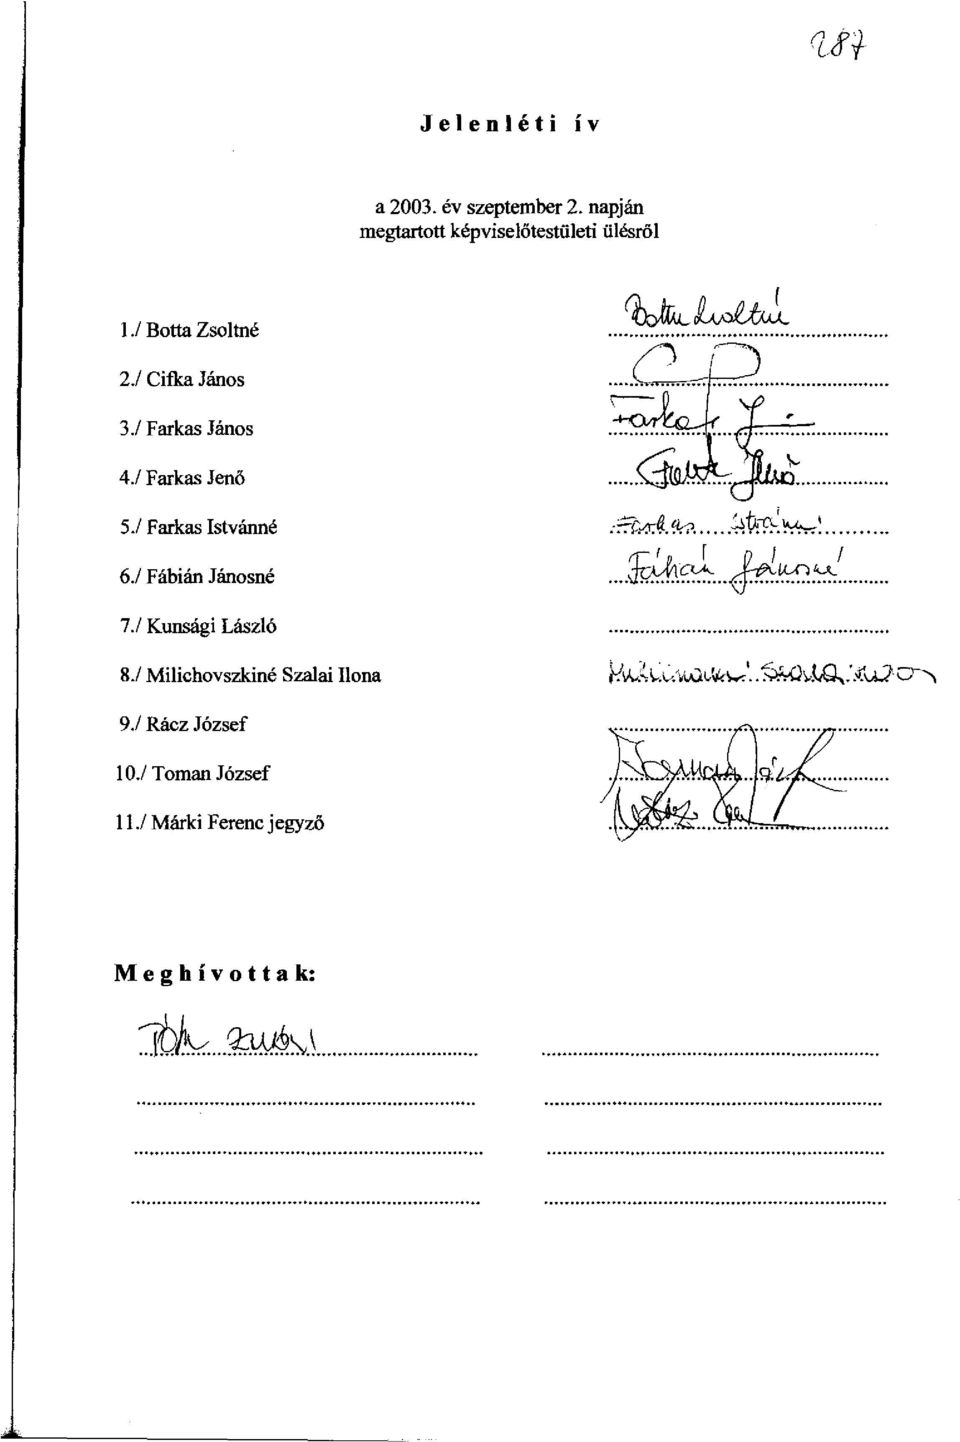 287
Jelenléti ív
a 2003. év szeptember 2. napján
megtartott képviselőtestületi ülésről
1./ Botta Zsoltné Botta Zsoltné
2./ Cifka János
3./ Farkas János Farkas J
4./ Farkas Jenő Farkas Jenő
5./ Farkas Istvánné Farkas Istvánné
6./ Fábián Jánosné Fábián Jánosné
7./ Kunsági László
8./ Milichovszkiné Szalai Ilona Milichovszkiné Szalai Ilona
9./ Rácz József
10./ Toman József
11./ Márki Ferenc jegyző
Meghívottak:
Tóth